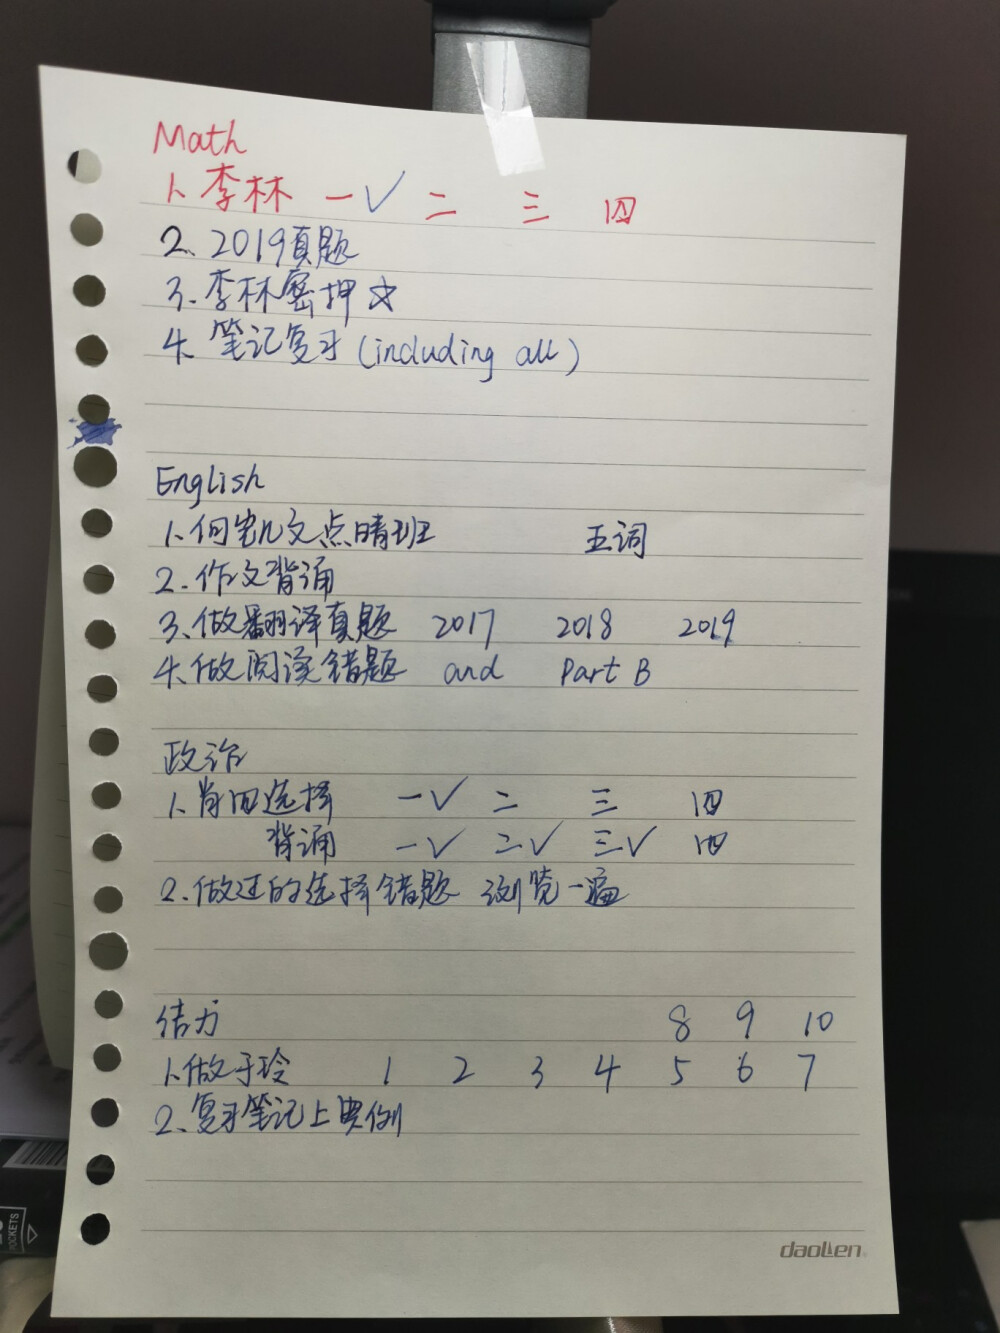 Math
1. 李林 一✓ 二 三 四
2. 2019真题
3. 李林密押☆
4. 笔记复习(including all)
English
1. 何凯文点睛班 五词
2. 作文背诵
3. 做翻译真题 2017 2018 2019
4. 做阅读错题 and Part B
政治
1. 肖四选择 一✓ 二 三 四
背诵 一✓ 二✓ 三✓ 四
2. 做过的选择错题 浏览一遍
结力 8 9 10
1. 做于玲 1 2 3 4 5 6 7
2. 复习笔记上典例
daolen
POCKETS